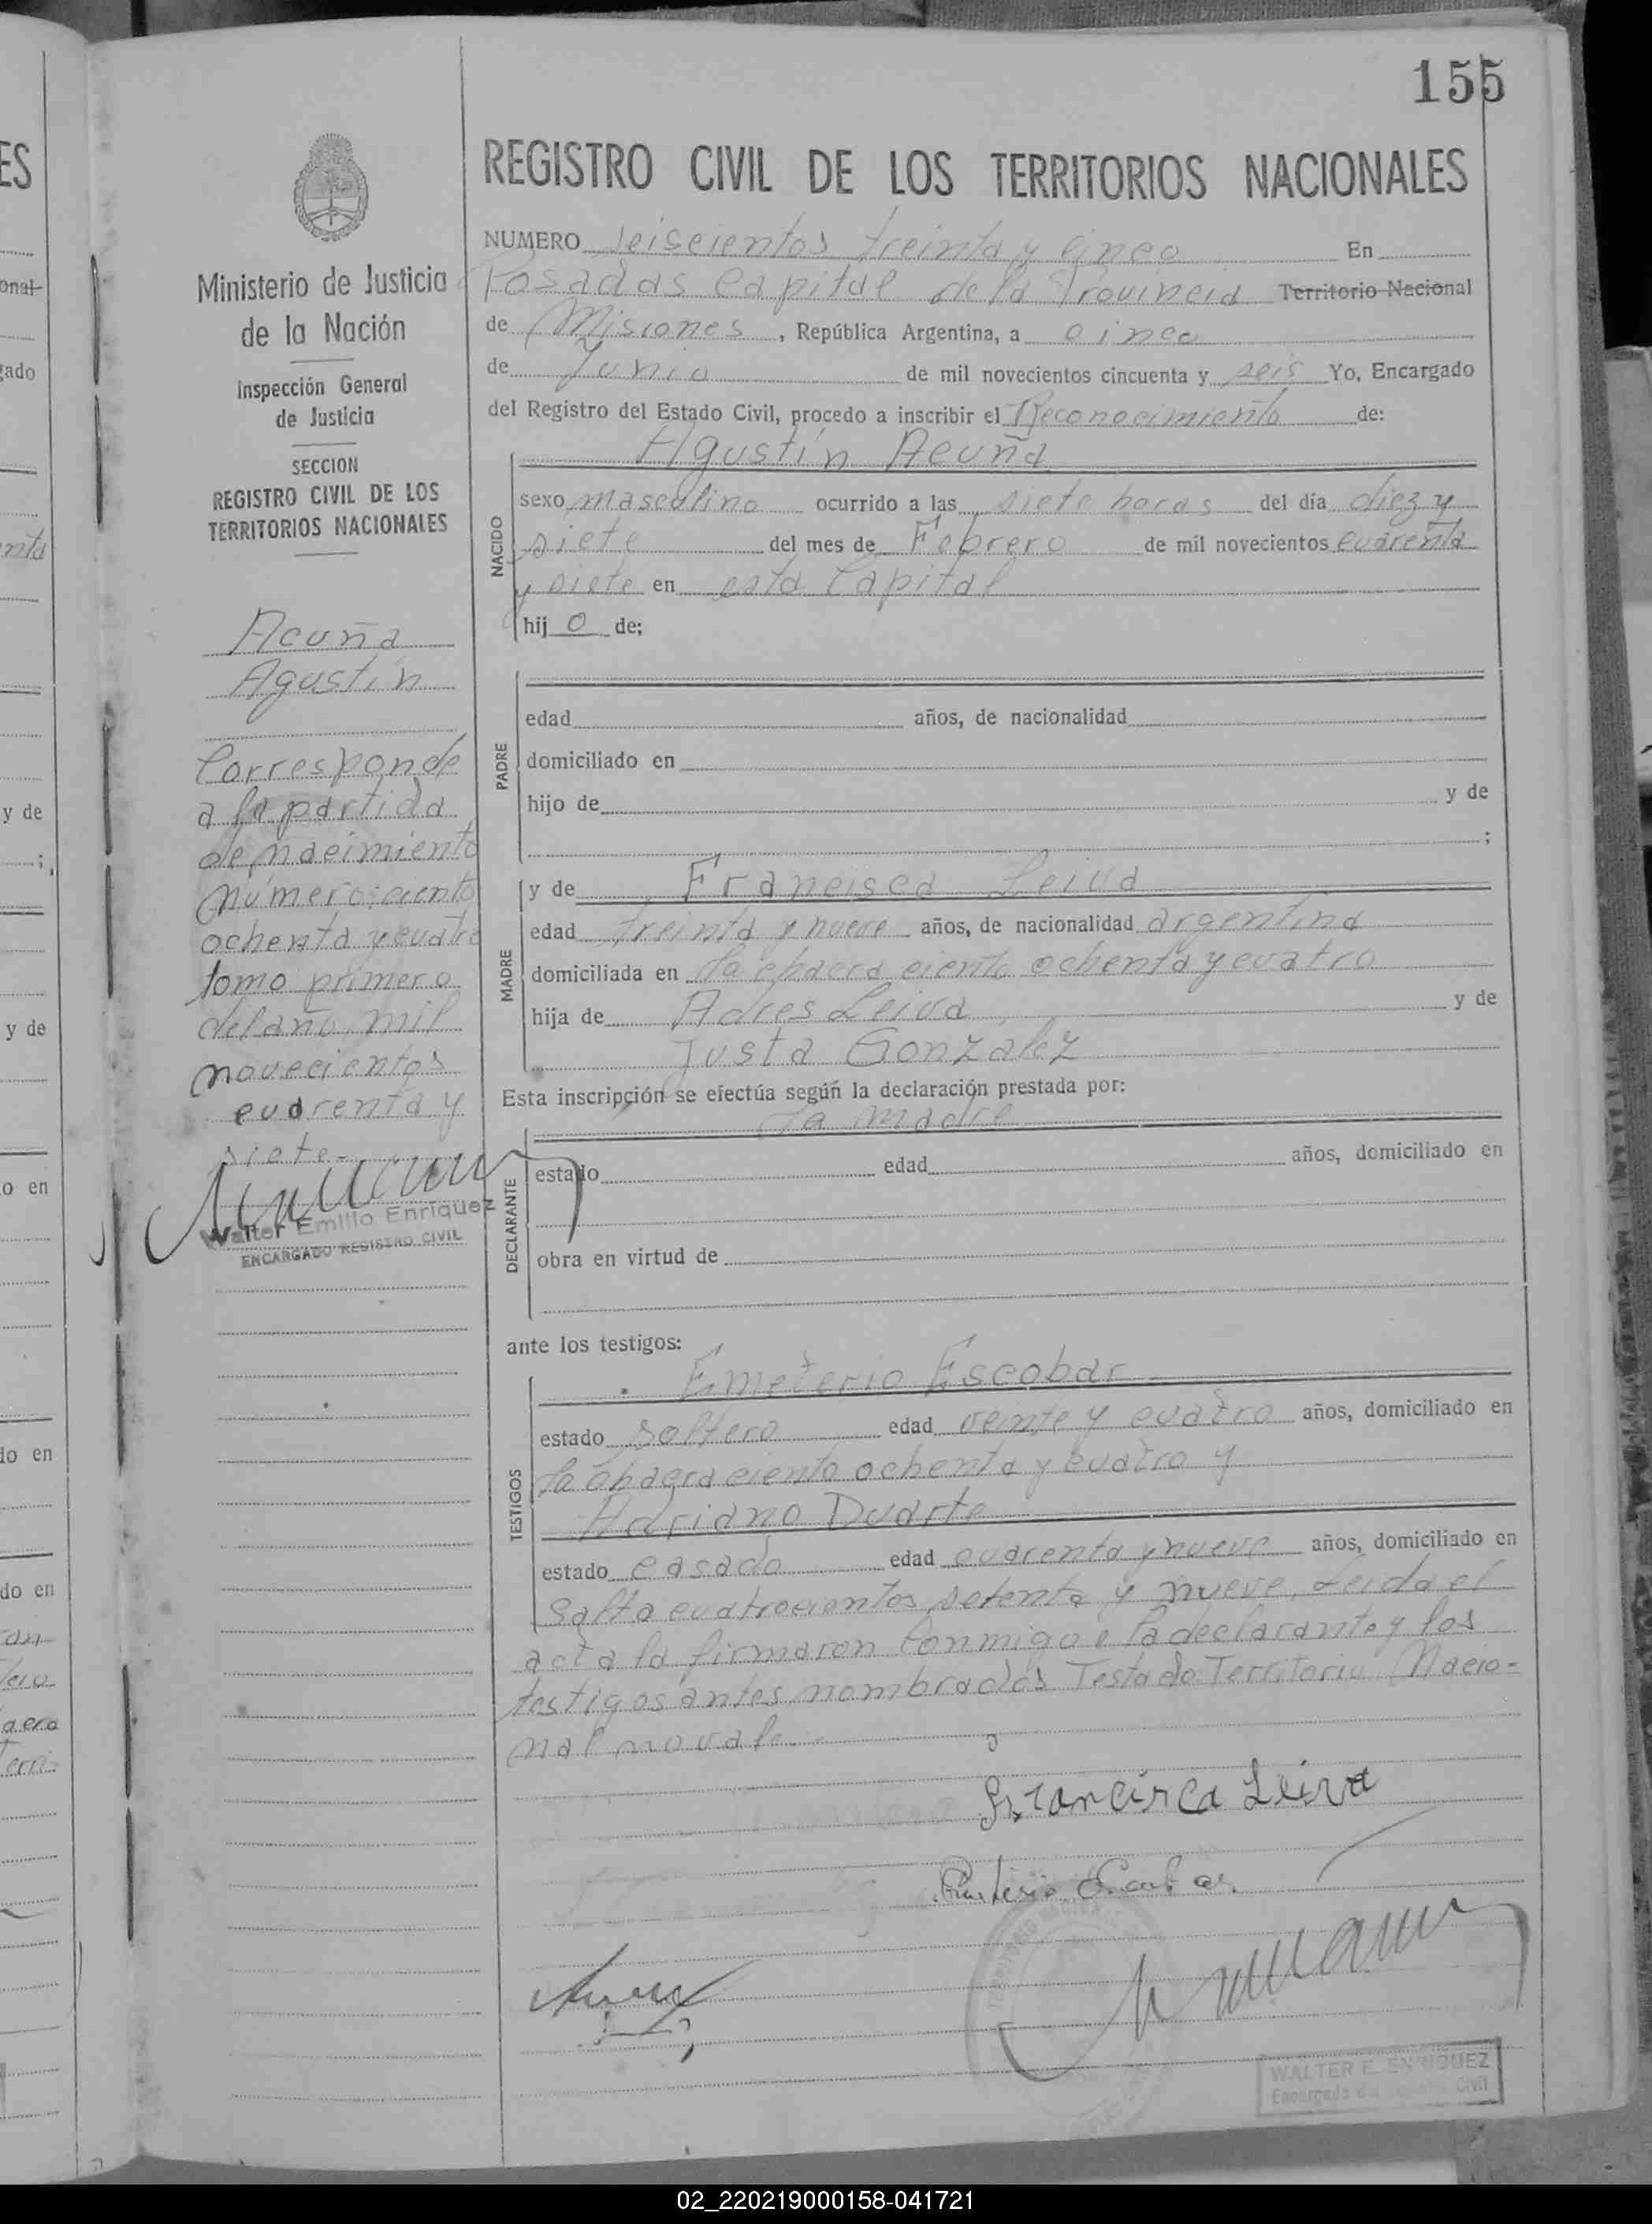 155
REGISTRO CIVIL DE LOS TERRITORIOS NACIONALES
Ministerio de Justicia
de la Nación
Inspección General
de Justicia
SECCION
REGISTRO CIVIL DE LOS
TERRITORIOS NACIONALES
Acuña
Agustín
Corresponde
a la partida
de nacimiento
número: ciento
ochenta y cuatro
tomo primero
del año mil
novecientos
cuarenta y
siete.-
Walter Emilio Enriquez
ENCARGADO REGISTRO CIVIL
NUMERO Seiscientos treinta y cinco En
Posadas Capital de la Provincia Territorio Nacional
de Misiones, República Argentina, a cinco
de Junio de mil novecientos cincuenta y seis Yo, Encargado
del Registro del Estado Civil, procedo a inscribir el Reconocimiento de:
Agustín Acuña
NACIDO
sexo masculino ocurrido a las siete horas del día diez y
siete del mes de Febrero de mil novecientos cuarenta
y siete en esta Capital
hijo de;
PADRE
edad años, de nacionalidad
domiciliado en
hijo de y de
;
MADRE
y de Francisca Leiva
edad treinta y nueve años, de nacionalidad argentina
domiciliada en la chacra ciento ochenta y cuatro
hija de Adres Leiva y de
Justa Gonzalez
Esta inscripción se efectúa según la declaración prestada por:
la madre
DECLARANTE
estado edad años, domiciliado en
obra en virtud de
ante los testigos:
TESTIGOS
Emeterio Escobar
estado soltero edad veinte y cuatro años, domiciliado en
la chacra ciento ochenta y cuatro y
Adriano Duarte
estado casado edad cuarenta y nueve años, domiciliado en
Salta cuatrocientos setenta y nueve. Leida el
acta la firmaron conmigo la declarante y los
testigos antes nombrados Testado: Territorio Nacio-
nal no vale.-
Francisca Leiva
WALTER E. ENRIQUEZ
02_220219000158-041721